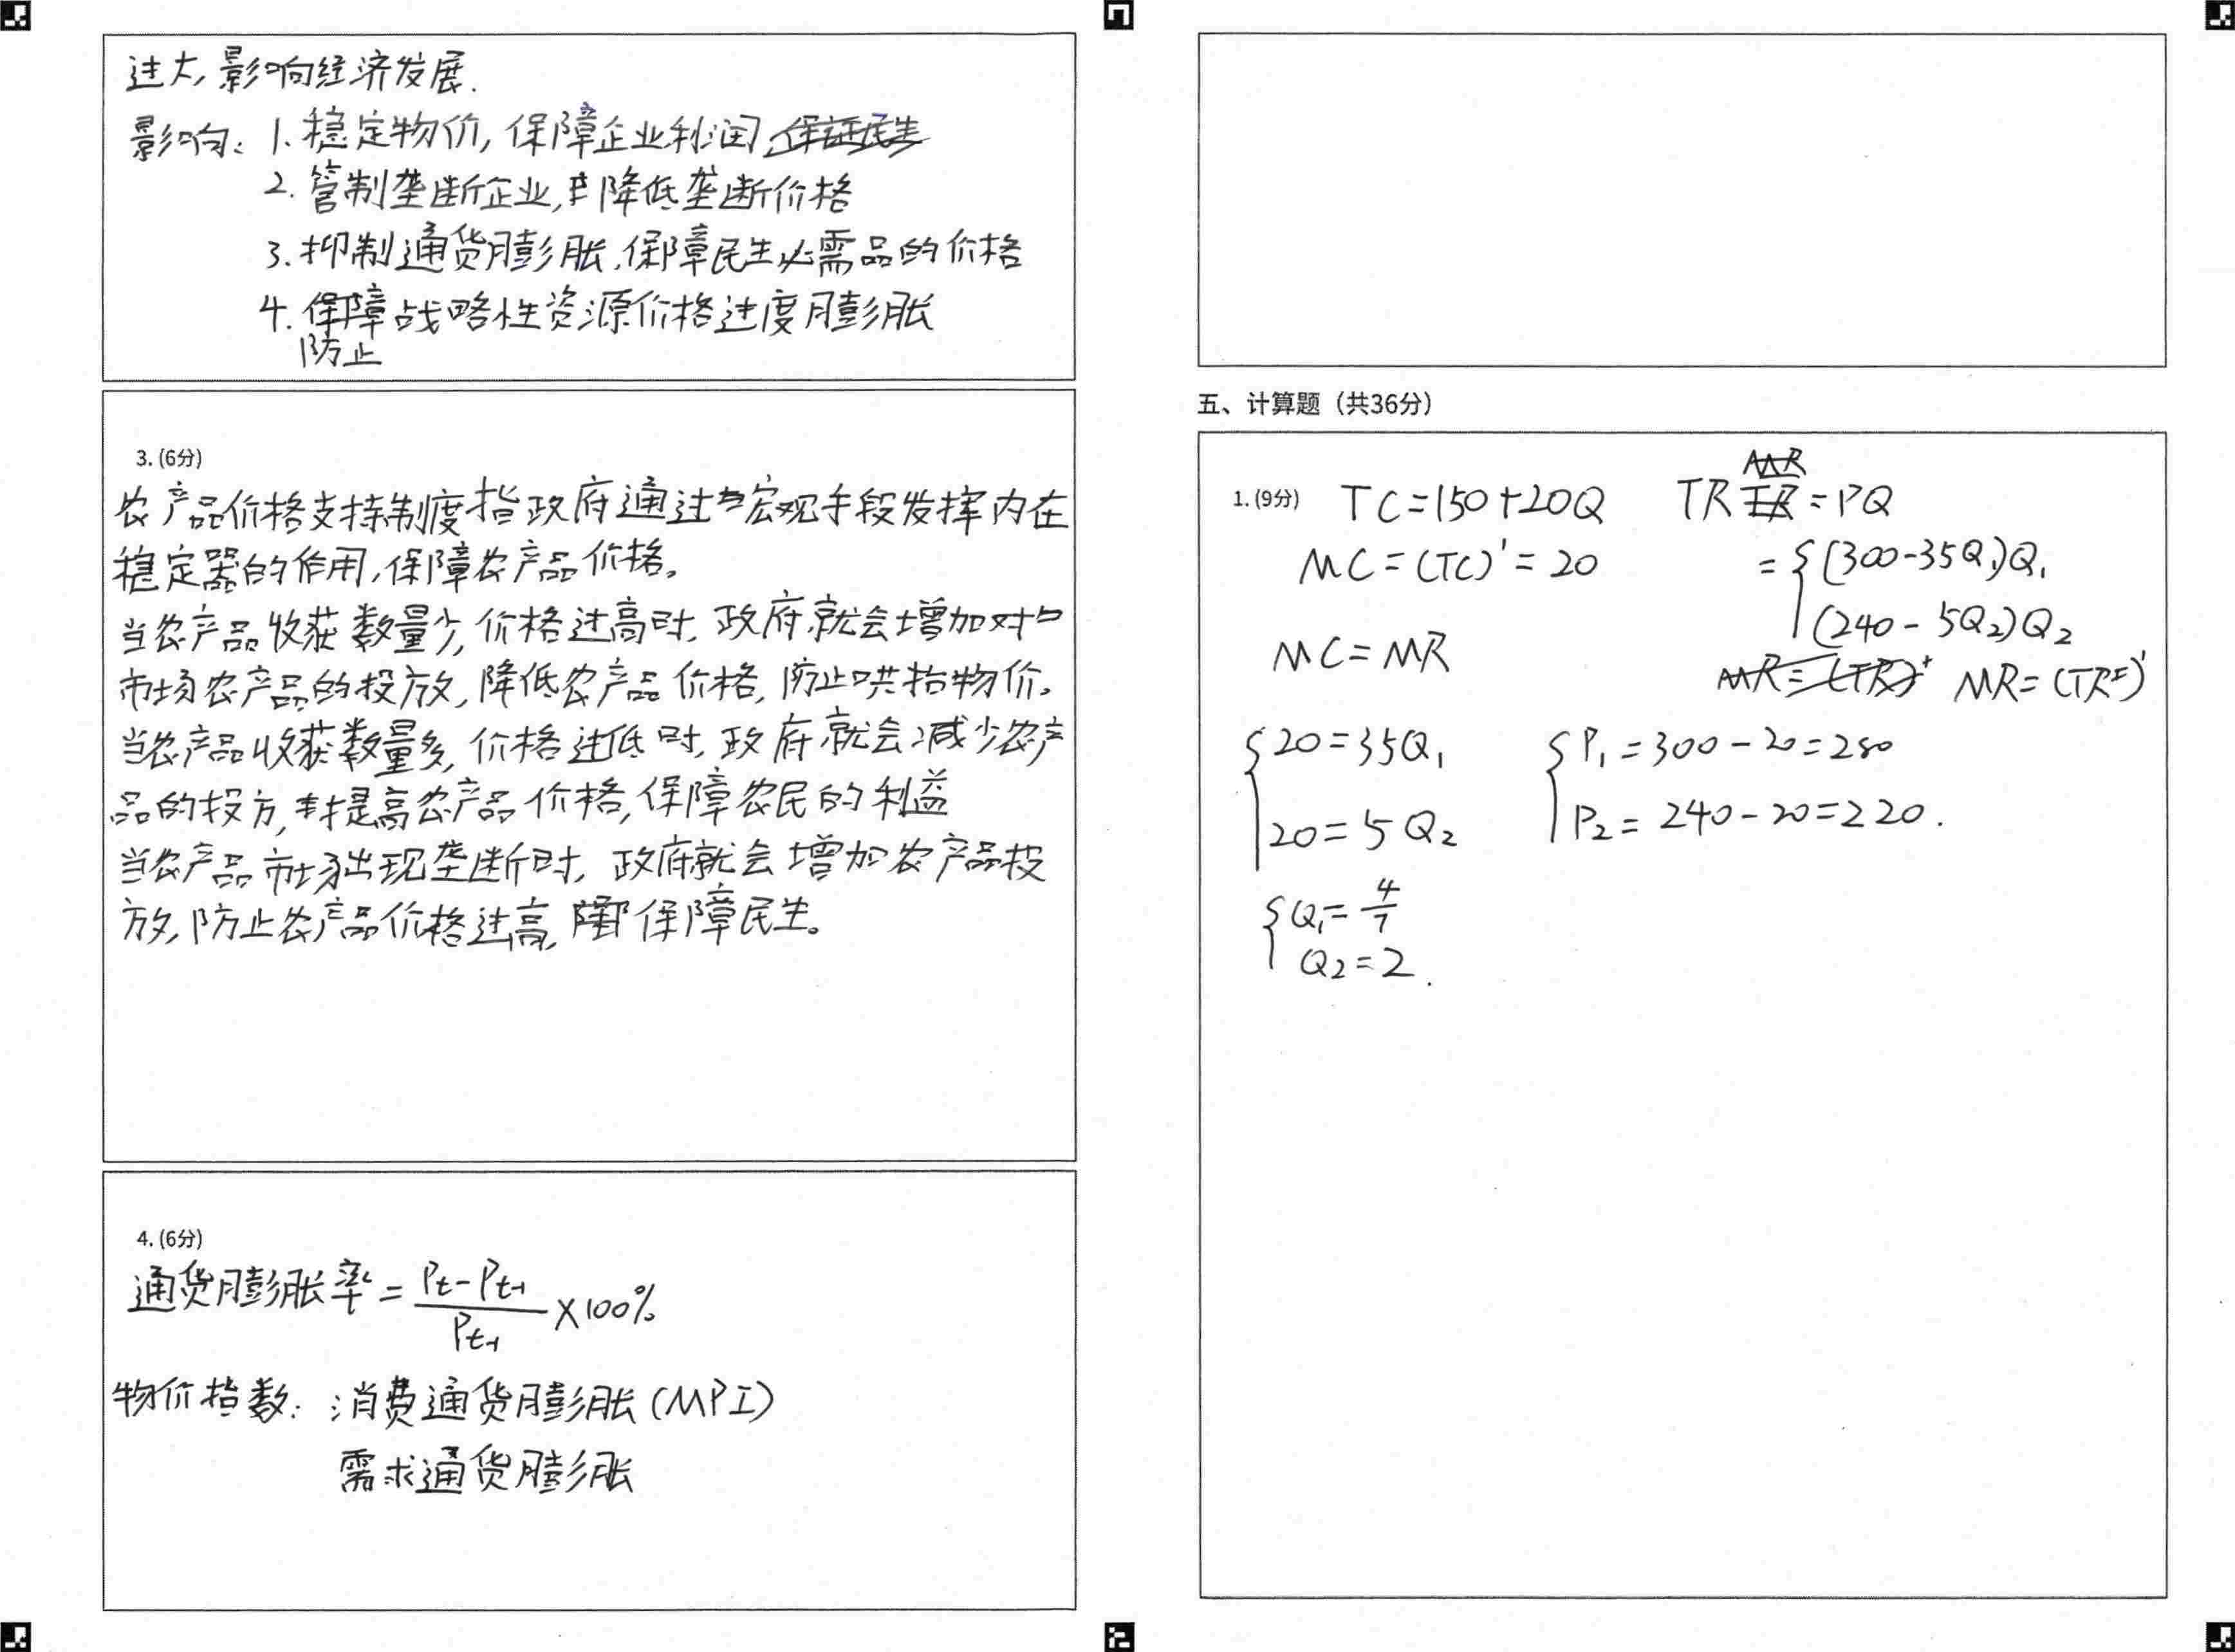 过大,影响经济发展.
影响: 1.稳定物价,保障企业利润
2.管制垄断企业,降低垄断价格
3.抑制通货膨胀,保障民生必需品的价格
4.保障战略性资源价格过度膨胀
防止
3.(6分)
农产品价格支持制度指政府通过宏观手段发挥内在
稳定器的作用,保障农产品价格。
当农产品收获数量少,价格过高时,政府就会增加对
市场农产品的投放,降低农产品价格,防止哄抬物价。
当农产品收获数量多,价格过低时,政府就会减少农产
品的投方,提高农产品价格,保障农民的利益
当农产品市场出现垄断时,政府就会增加农产品投
放,防止农产品价格过高,保障民生。
4.(6分)
通货膨胀率=(Pt-Pt-1)/Pt-1×100%
物价指数:消费通货膨胀(MPI)
需求通货膨胀
五、计算题(共36分)
1.(9分) TC=150+20Q TR=PQ
MC=(TC)'=20 ={(300-35Q1)Q1
(240-5Q2)Q2
MC=MR MR=(TR)'
{20=35Q1 {P1=300-20=280
20=5Q2 P2=240-20=220.
{Q1=4/7
Q2=2.